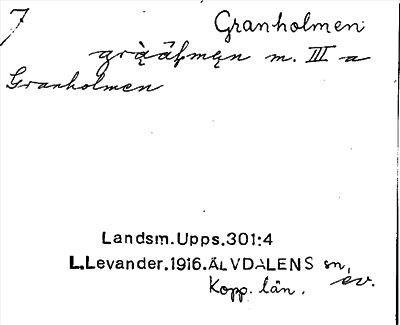 7 Granholmen
grą̀ą̂ɫmęn m. III a
Granholmen
Landsm.Upps.301:4
L.Levander.1916.ÄLVDALENS sn,
Kopp. län. ev.